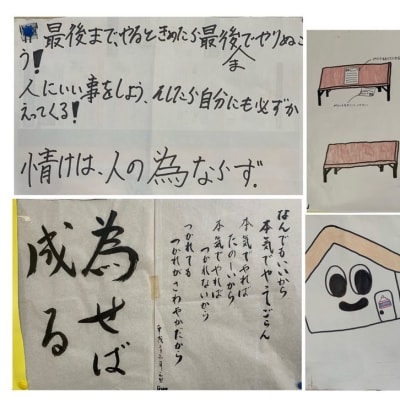 最後まで、やるときめたら最後までやりぬこ
う!
人にいい事をしよう、そしたら自分にも必ずか
えってくる!
情けは、人の為ならず。
為せば
成る
なんでもいいから
本気でやってごらん
本気でやれば
たのしいから
本気でやれば
つかれないから
つかれても
つかれがさわやかだから